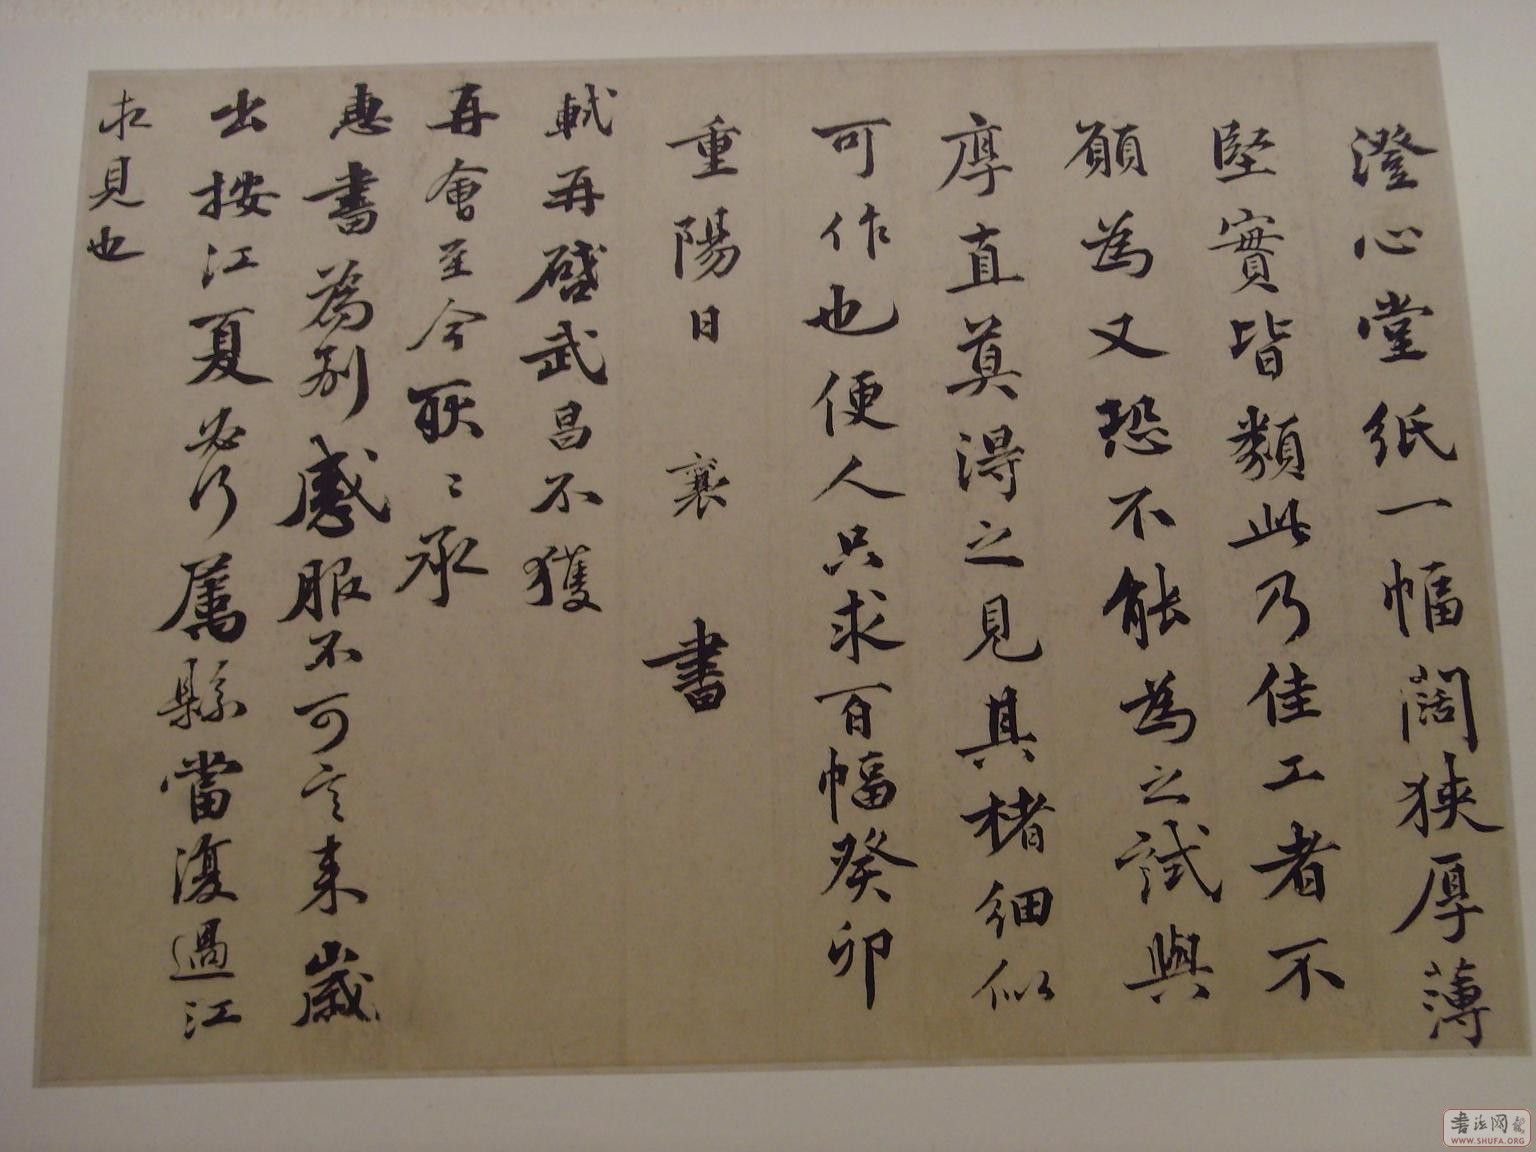 澄心堂紙一幅闊狹厚薄
堅實皆類此乃佳工者不
願為又恐不能為之試與
厚直莫得之見其楮細似
可作也便人只求百幅癸卯
重陽日 襄 書
軾再啓武昌不獲
再會至今耿〻承
惠書為別感服不可言来歲
出按江夏必行屬縣當復過江
求見也
書法网
WWW.SHUFA.ORG